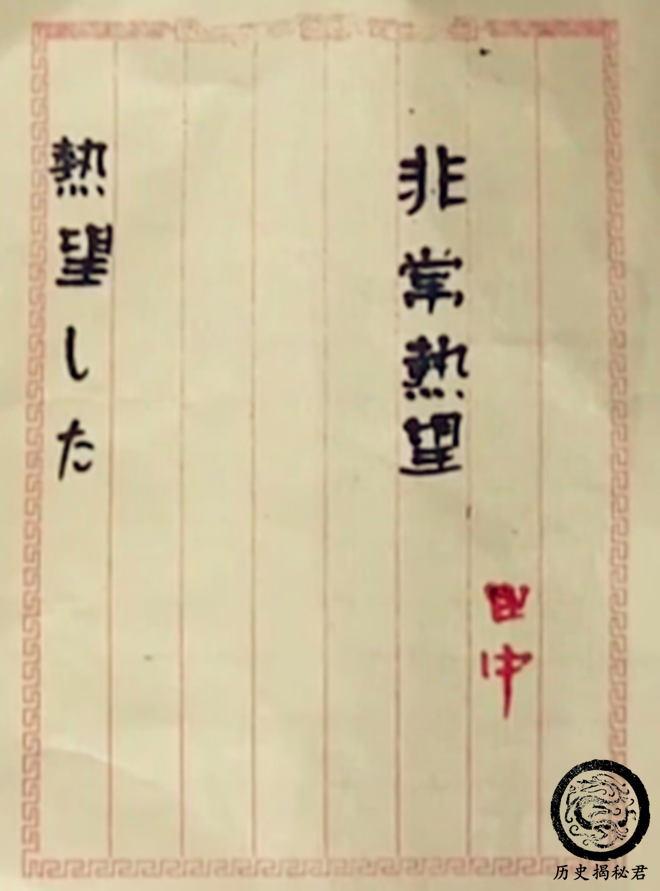 田中
非常熱望
熱望した
历史揭秘君